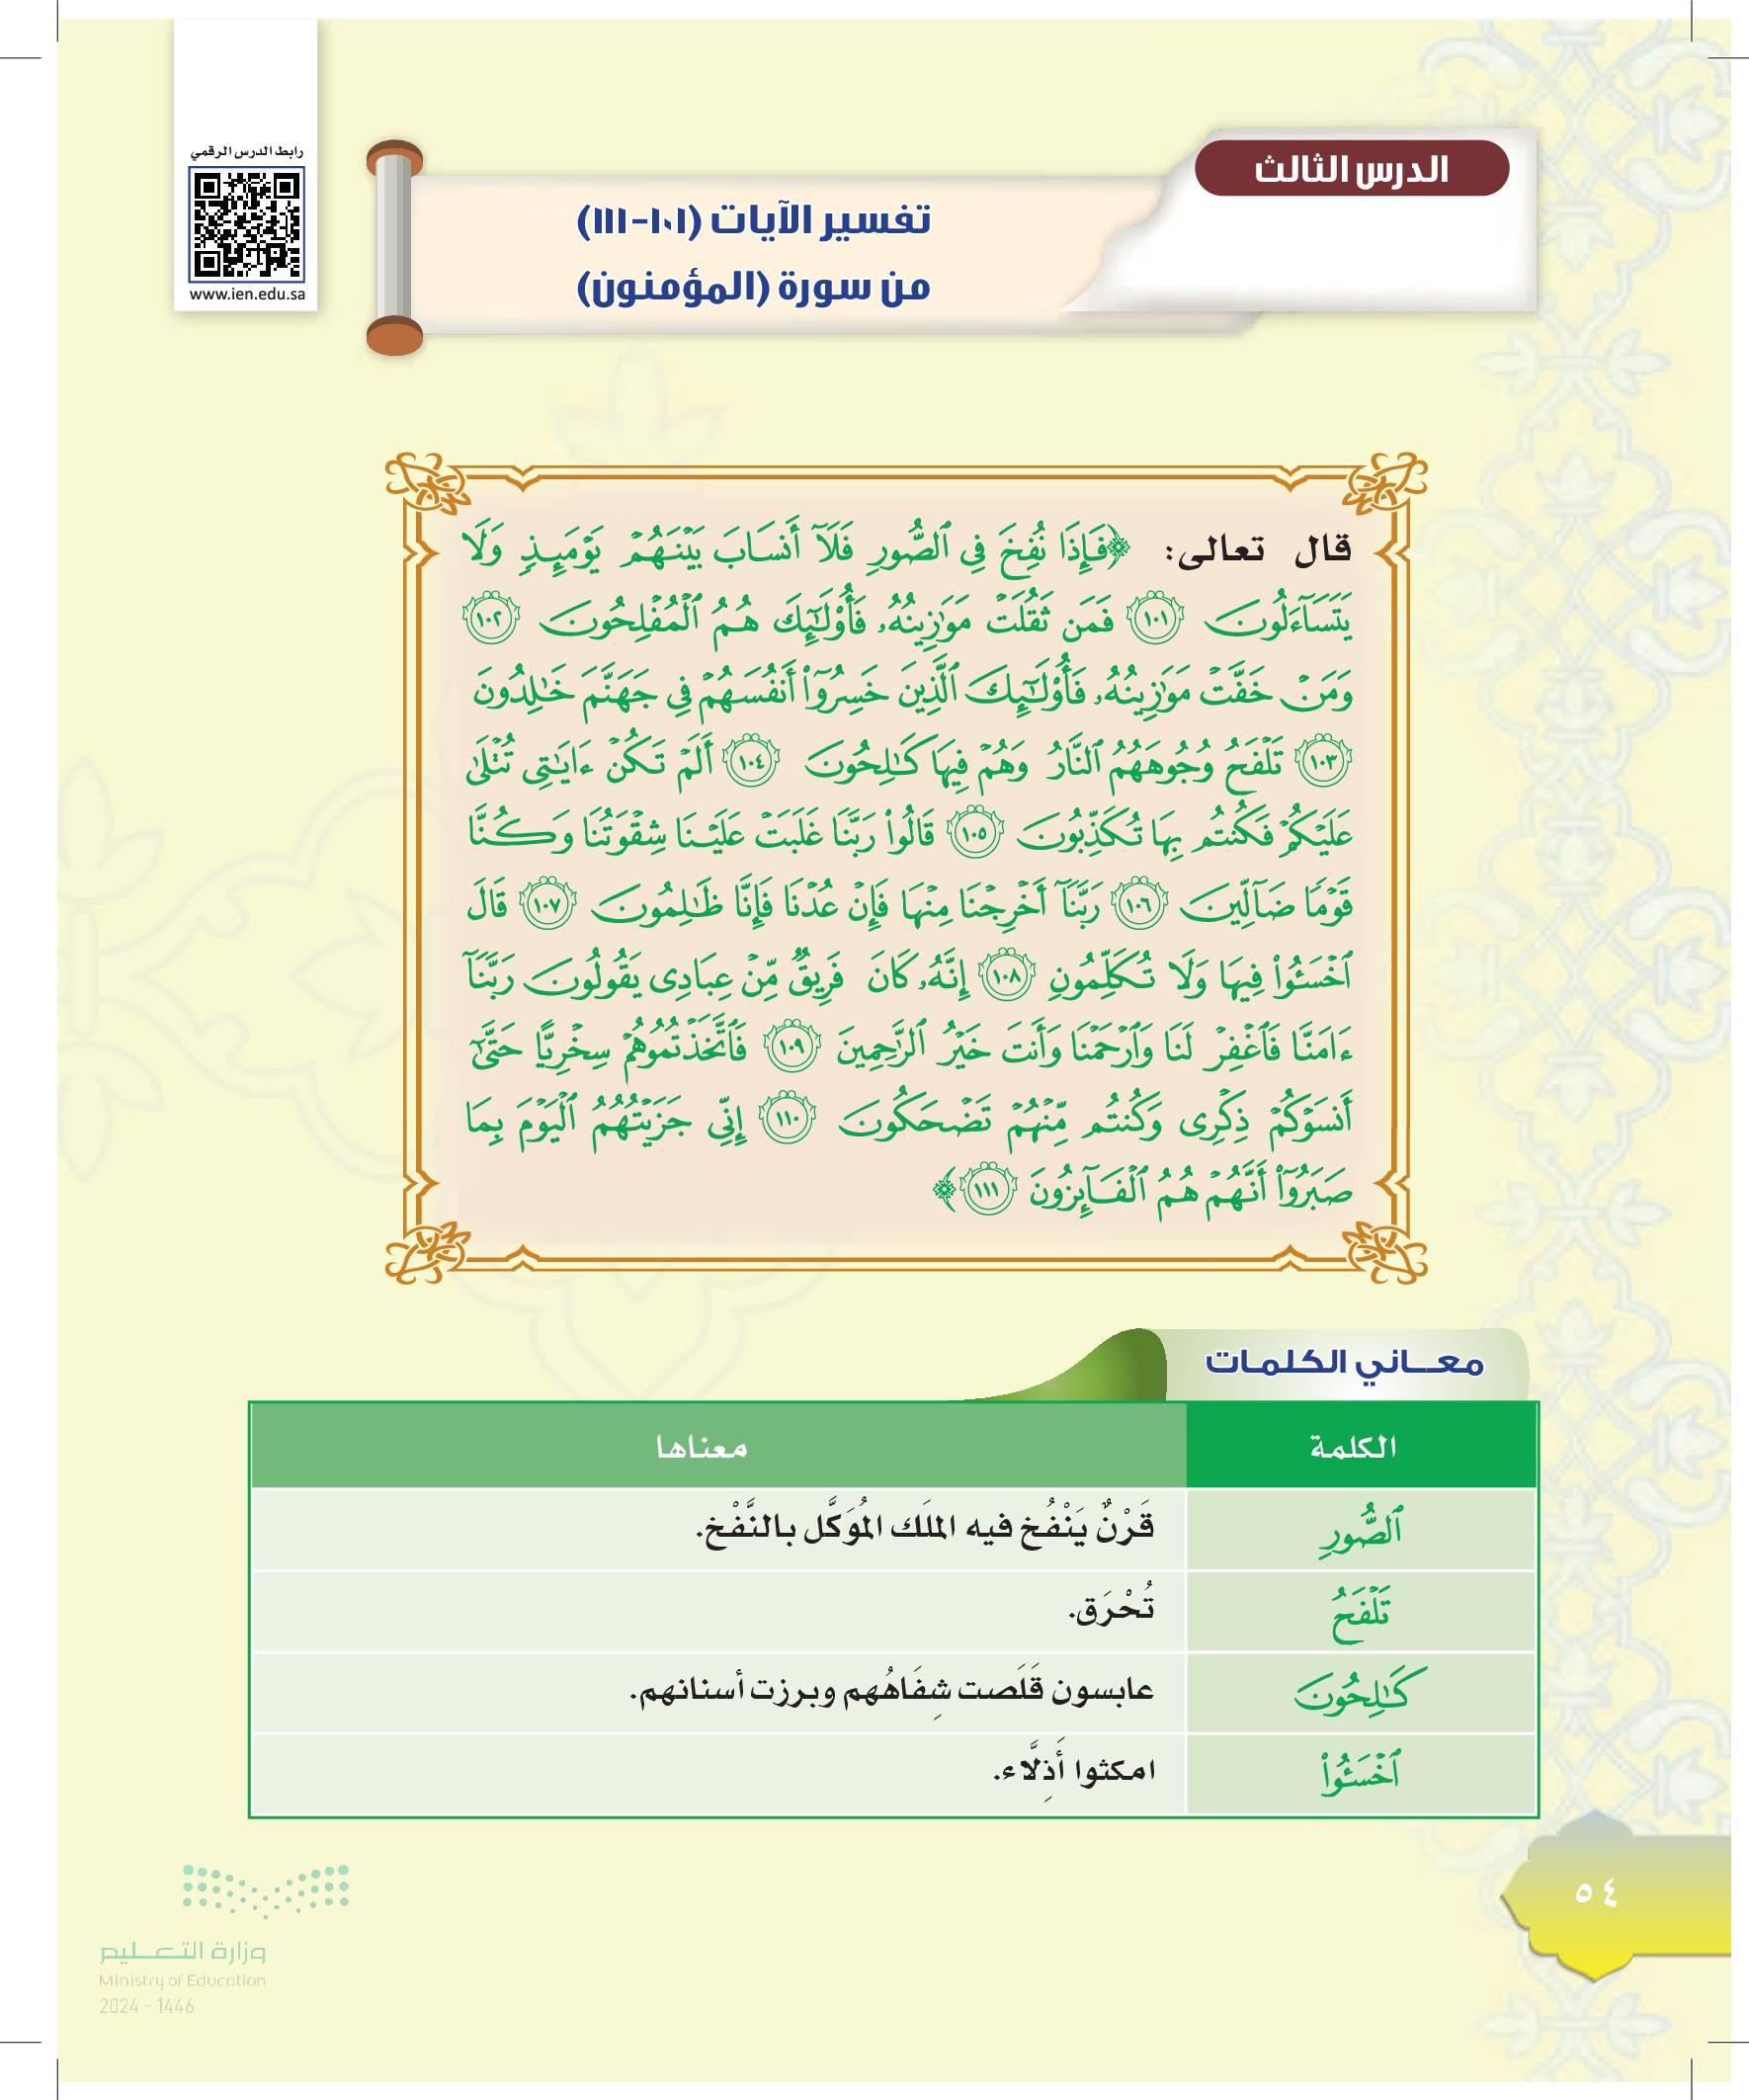 رابط الدرس الرقمي
www.ien.edu.sa
الدرس الثالث
تفسير الآيات (١٠١-١١١)
من سورة (المؤمنون)
قال تعالى: ﴿فَإِذَا نُفِخَ فِى ٱلصُّورِ فَلَآ أَنسَابَ بَيْنَهُمْ يَوْمَئِذٍ وَلَا
يَتَسَآءَلُونَ ١٠١ فَمَن ثَقُلَتْ مَوَٰزِينُهُۥ فَأُو۟لَـٰٓئِكَ هُمُ ٱلْمُفْلِحُونَ ١٠٢
وَمَنْ خَفَّتْ مَوَٰزِينُهُۥ فَأُو۟لَـٰٓئِكَ ٱلَّذِينَ خَسِرُوٓا۟ أَنفُسَهُمْ فِى جَهَنَّمَ خَـٰلِدُونَ
١٠٣ تَلْفَحُ وُجُوهَهُمُ ٱلنَّارُ وَهُمْ فِيهَا كَـٰلِحُونَ ١٠٤ أَلَمْ تَكُنْ ءَايَـٰتِى تُتْلَىٰ
عَلَيْكُمْ فَكُنتُم بِهَا تُكَذِّبُونَ ١٠٥ قَالُوا۟ رَبَّنَا غَلَبَتْ عَلَيْنَا شِقْوَتُنَا وَكُنَّا
قَوْمًا ضَآلِّينَ ١٠٦ رَبَّنَآ أَخْرِجْنَا مِنْهَا فَإِنْ عُدْنَا فَإِنَّا ظَـٰلِمُونَ ١٠٧ قَالَ
ٱخْسَـُٔوا۟ فِيهَا وَلَا تُكَلِّمُونِ ١٠٨ إِنَّهُۥ كَانَ فَرِيقٌ مِّنْ عِبَادِى يَقُولُونَ رَبَّنَآ
ءَامَنَّا فَٱغْفِرْ لَنَا وَٱرْحَمْنَا وَأَنتَ خَيْرُ ٱلرَّٰحِمِينَ ١٠٩ فَٱتَّخَذْتُمُوهُمْ سِخْرِيًّا حَتَّىٰٓ
أَنسَوْكُمْ ذِكْرِى وَكُنتُم مِّنْهُمْ تَضْحَكُونَ ١١٠ إِنِّى جَزَيْتُهُمُ ٱلْيَوْمَ بِمَا
صَبَرُوٓا۟ أَنَّهُمْ هُمُ ٱلْفَآئِزُونَ ١١١﴾
معـــاني الكلمـات
الكلمة معناها
ٱلصُّورِ قَرْنٌ يَنْفُخ فيه الملَك المُوَكَّل بالنَّفْخ.
تَلْفَحُ تُحْرَق.
كَـٰلِحُونَ عابسون قَلَصت شِفَاهُهم وبرزت أسنانهم.
ٱخْسَـُٔوا۟ امكثوا أَذِلَّاء.
٥٤
وزارة التعـــليم
Ministry of Education
2024 - 1446